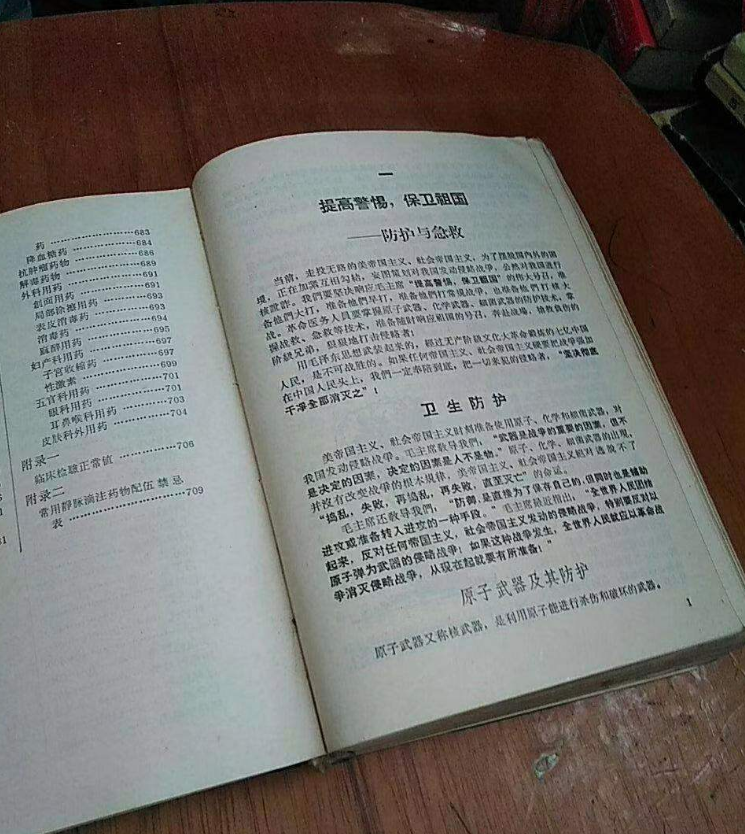 药 ……………………683
降血糖药 ……………………684
抗肿瘤药物 ……………………686
解毒药物 ……………………689
外科用药 ……………………691
创面用药 ……………………691
局部涂擦用药 ……………………693
表皮消毒药 ……………………693
消毒药 ……………………694
麻醉用药 ……………………695
妇产科用药 ……………………697
子宫收缩药 ……………………697
性激素 ……………………699
五官科用药 ……………………701
眼科用药 ……………………701
耳鼻喉科用药 ……………………703
皮肤科外用药 ……………………704
附录一
临床检验正常值 ……………………706
附录二
常用静脉滴注药物配伍禁忌
表 ……………………709
一
提高警惕，保卫祖国
——防护与急救
当前，走投无路的美帝国主义、社会帝国主义，为了摆脱国内外的困
境，正在加紧互相勾结，妄图策划对我国发动侵略战争，公然对我国进行
核讹诈。我们要坚决响应毛主席“提高警惕，保卫祖国”的伟大号召，准
备他們大打，准备他們早打，准备他們打常规战争，也准备他們打核大
战。革命医务人员要掌握原子武器、化学武器、细菌武器的防护技术，掌
握战救、急救等技术，准备随时响应祖国的号召，奔赴战场，抢救负伤的
阶级兄弟，狠狠地打击侵略者！
用毛泽东思想武装起来的，经过无产阶级文化大革命锻炼的七亿中国
人民，是不可战胜的。如果任何帝国主义、社会帝国主义硬要把战争强加
在中国人民头上，我們一定奉陪到底，把一切来犯的侵略者，“坚决彻底
干净全部消灭之”！
卫生防护
美帝国主义、社会帝国主义时刻准备使用原子、化学和细菌武器，对
我国发动侵略战争。毛主席教导我們，“武器是战争的重要的因素，但不
是决定的因素，决定的因素是人不是物。”原子、化学、细菌武器的出现，
并没有改变战争的根本规律，美帝国主义、社会帝国主义绝对逃脱不了
“捣乱，失败，再捣乱，再失败，直至灭亡”的命运。
毛主席还教导我們，“防御，是直接为了保存自己的，但同时也是辅助
进攻或准备转入进攻的一种手段。”毛主席最近指出，“全世界人民团结
起来，反对任何帝国主义、社会帝国主义发动的侵略战争，特别要反对以
原子弹为武器的侵略战争！如果这种战争发生，全世界人民就应以革命战
争消灭侵略战争，从现在起就要有所准备！”
原子武器及其防护
原子武器又称核武器，是利用原子能进行杀伤和破坏的武器。
1